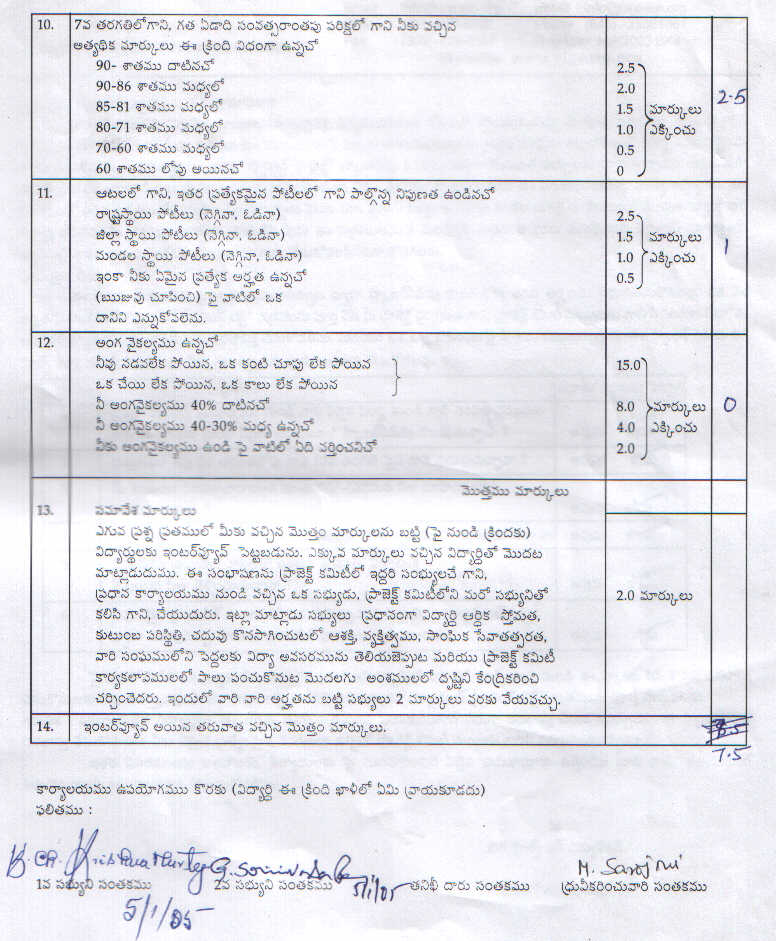 10. 7వ తరగతిలోగాని, గత ఏడాది సంవత్సరాంతపు పరీక్షలో గాని నీకు వచ్చిన
అత్యధిక మార్కులు ఈ క్రింది విధంగా ఉన్నచో
90- శాతము దాటినచో 2.5
90-86 శాతము మధ్యలో 2.0
85-81 శాతము మధ్యలో 1.5 మార్కులు 2.5
80-71 శాతము మధ్యలో 1.0 ఎక్కించు
70-60 శాతము మధ్యలో 0.5
60 శాతము లోపు అయినచో 0
11. ఆటలలో గాని, ఇతర ప్రత్యేకమైన పోటీలలో గాని పాల్గొన్న నిపుణత ఉండినచో
రాష్ట్రస్థాయి పోటీలు (నెగ్గినా, ఓడినా) 2.5
జిల్లా స్థాయి పోటీలు (నెగ్గినా, ఓడినా) 1.5 మార్కులు 1
మండల స్థాయి పోటీలు (నెగ్గినా, ఓడినా) 1.0 ఎక్కించు
ఇంకా నీకు ఏమైన ప్రత్యేక అర్హత ఉన్నచో 0.5
(ఋజువు చూపించి) పై వాటిలో ఒక
దానిని ఎన్నుకోవలెను.
12. అంగ వైకల్యము ఉన్నచో
నీవు నడవలేక పోయిన, ఒక కంటి చూపు లేక పోయిన 15.0
ఒక చేయి లేక పోయిన, ఒక కాలు లేక పోయిన
నీ అంగవైకల్యము 40% దాటినచో 8.0 మార్కులు 0
నీ అంగవైకల్యము 40-30% మధ్య ఉన్నచో 4.0 ఎక్కించు
నీకు అంగవైకల్యము ఉండి పై వాటిలో ఏది వర్తించనిచో 2.0
మొత్తము మార్కులు
13. సమావేశ మార్కులు
ఎగువ ప్రశ్న ప్రతములో మీకు వచ్చిన మొత్తం మార్కులను బట్టి (పై నుండి క్రిందకు)
విద్యార్థులకు ఇంటర్‌వ్యూవ్ పెట్టబడును. ఎక్కువ మార్కులు వచ్చిన విద్యార్థితో మొదట
మాట్లాడుదుము. ఈ సంభాషణను ప్రాజెక్ట్ కమిటీలో ఇద్దరి సంభ్యులచే గాని,
ప్రధాన కార్యాలయము నుండి వచ్చిన ఒక సభ్యుడు, ప్రాజెక్ట్ కమిటీలోని మరో సభ్యునితో 2.0 మార్కులు
కలిసి గాని, చేయుదురు. ఇట్లా మాట్లాడు సభ్యులు ప్రధానంగా విద్యార్థి ఆర్థిక స్తోమత,
కుటుంబ పరిస్థితి, చదువు కొనసాగించుటలో ఆశక్తి, వ్యక్తిత్వము, సాంఘిక సేవాతత్పరత,
వారి సంఘములోని పెద్దలకు విద్యా అవసరమును తెలియజెప్పుట మరియు ప్రాజెక్ట్ కమిటీ
కార్యకలాపములలో పాలు పంచుకొనుట మొదలగు అంశములలో దృష్టిని కేంద్రికరించి
చర్చించెదరు. ఇందులో వారి వారి అర్హతను బట్టి సభ్యులు 2 మార్కులు వరకు వేయవచ్చు.
14. ఇంటర్‌వ్యూవ్ అయిన తరువాత వచ్చిన మొత్తం మార్కులు.
7.5
కార్యాలయము ఉపయోగముు కొరకు (విద్యార్థి ఈ క్రింది ఖాళీలో ఏమి వ్రాయకూడదు)
ఫలితము :
K. Ch. Krishna Murty G. Srinivasa 5/1/05 M. Sarojini
1వ సభ్యుని సంతకము 2వ సభ్యుని సంతకము తనిఖీ దారు సంతకము ధ్రువీకరించువారి సంతకము
5/1/05